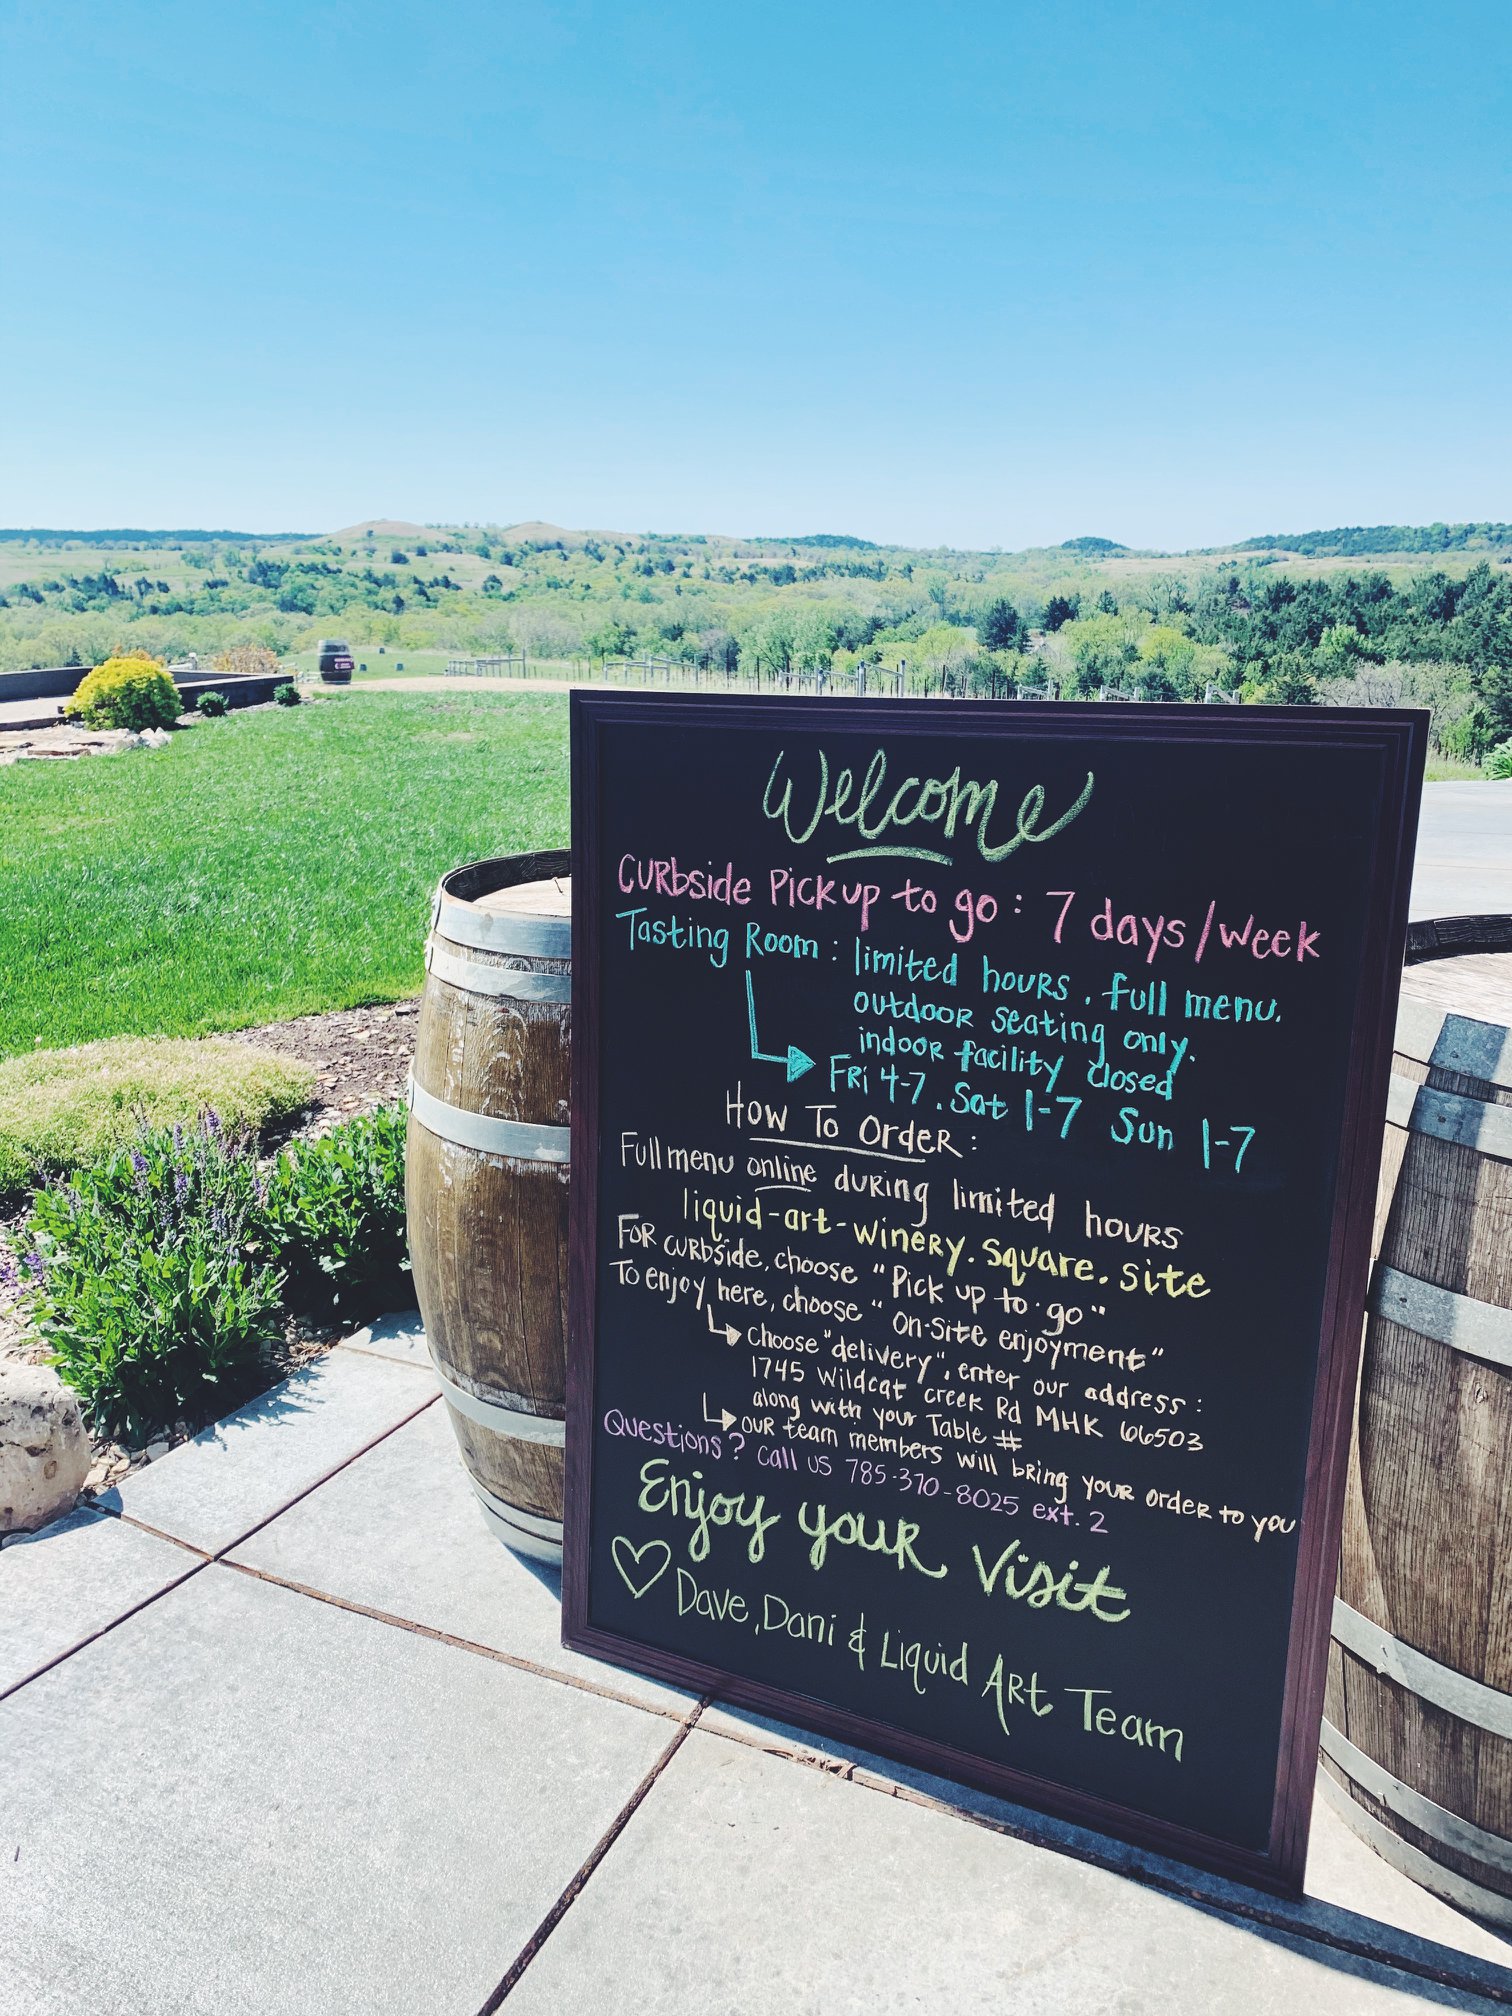 Welcome
Curbside Pickup to go : 7 days/week
Tasting Room : limited hours . full menu.
outdoor seating only.
indoor facility closed
Fri 4-7 . Sat 1-7 Sun 1-7
How To Order :
Full menu online during limited hours
liquid-art-winery.square.site
For curbside, choose "Pick up to go"
To enjoy here, choose "on-site enjoyment"
choose "delivery", enter our address :
1745 Wildcat Creek Rd MHK 66503
along with your Table #
our team members will bring your order to you
Questions? Call us 785-370-8025 ext. 2
Enjoy your Visit
Dave, Dani & Liquid Art Team